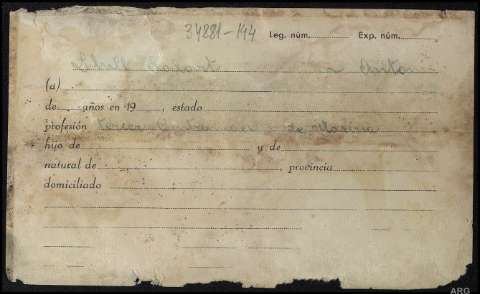 34281-144 Leg. núm. Exp. núm.
(a)
de años en 19 , estado
profesión de Marina
hijo de y de
natural de , provincia
domiciliado
ARG